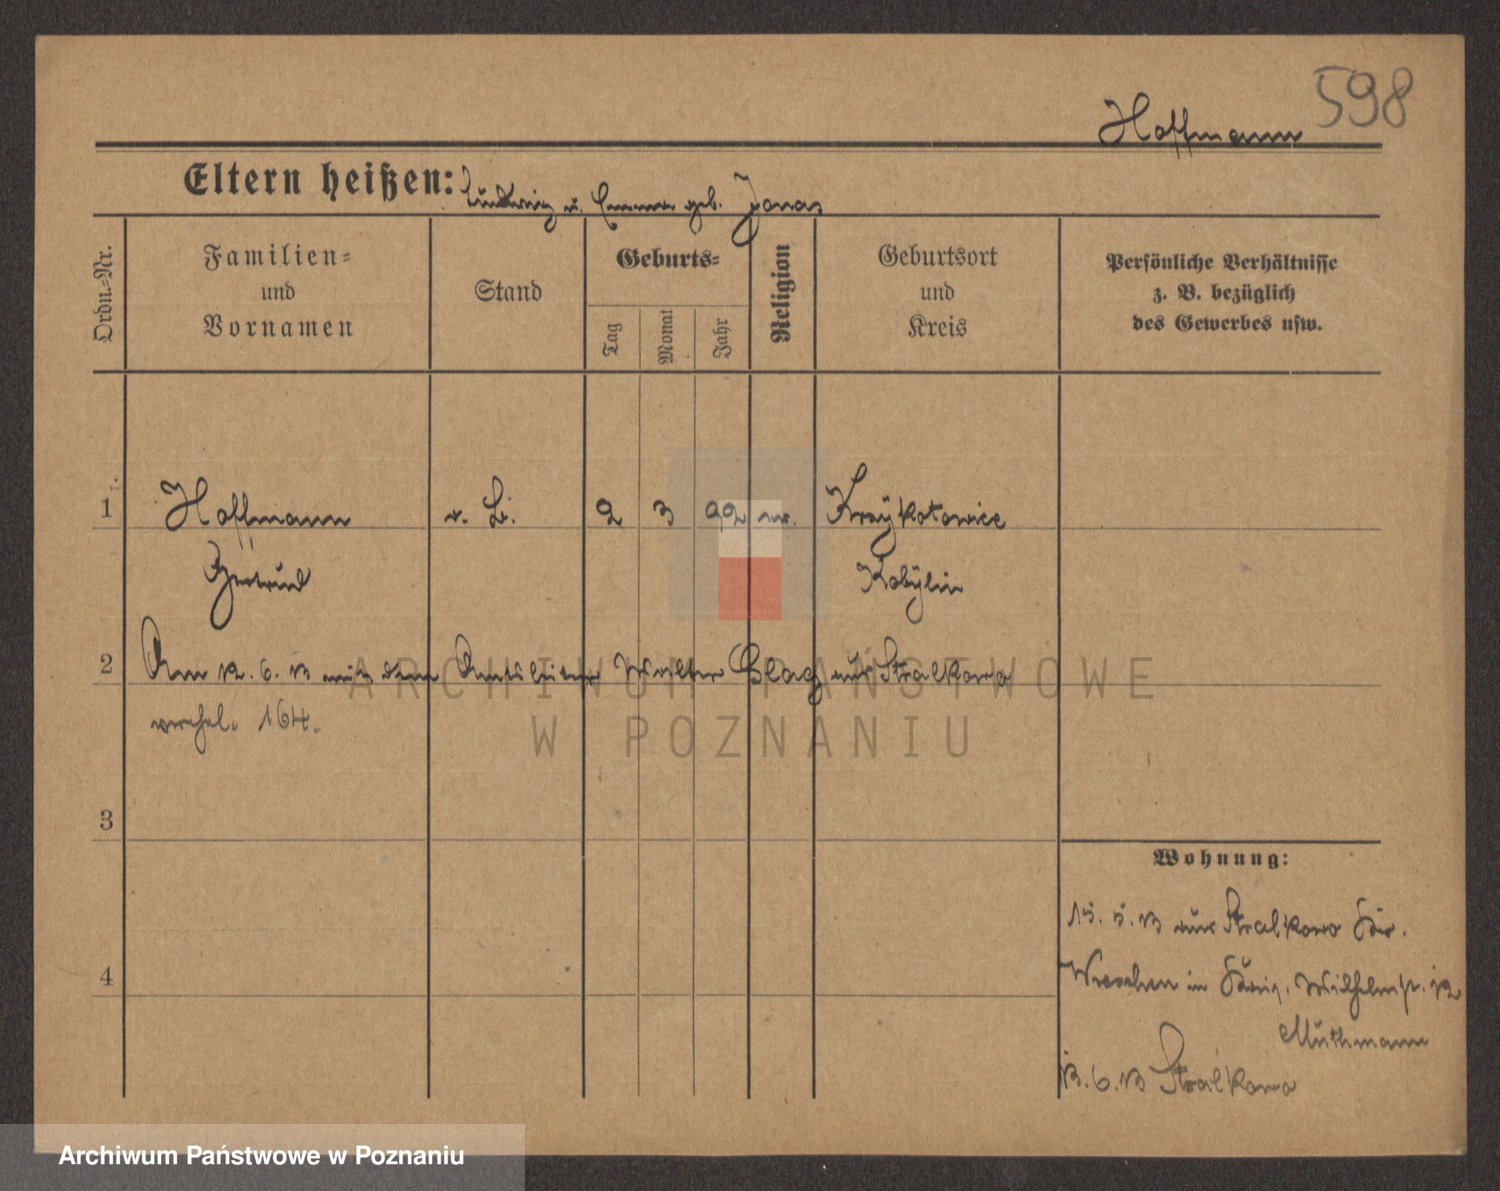 598
Hoffmann
Eltern heißen: Ludwig u. Emma geb. Jonas
Ordn.-Nr.
Familien-
und
Vornamen
Stand
Geburts-
Tag
Monat
Jahr
Religion
Geburtsort
und
Kreis
Persönliche Verhältnisse
z. B. bezüglich
des Gewerbes usw.
1 Hoffmann 2 3 92 Kraykotowice
Gertrud Kobylin
2 Am 12. 6. 13 mit dem Amtsleiter Walter aus Stralkowo
verehel. 164.
3
4
Wohnung:
15. 5. 13 aus Stralkowo Kr.
Wreschen in Wilhelmstr. 12
Muthmann
13. 6. 13 Stralkowo
ARCHIWUM PAŃSTWOWE
W POZNANIU
Archiwum Państwowe w Poznaniu